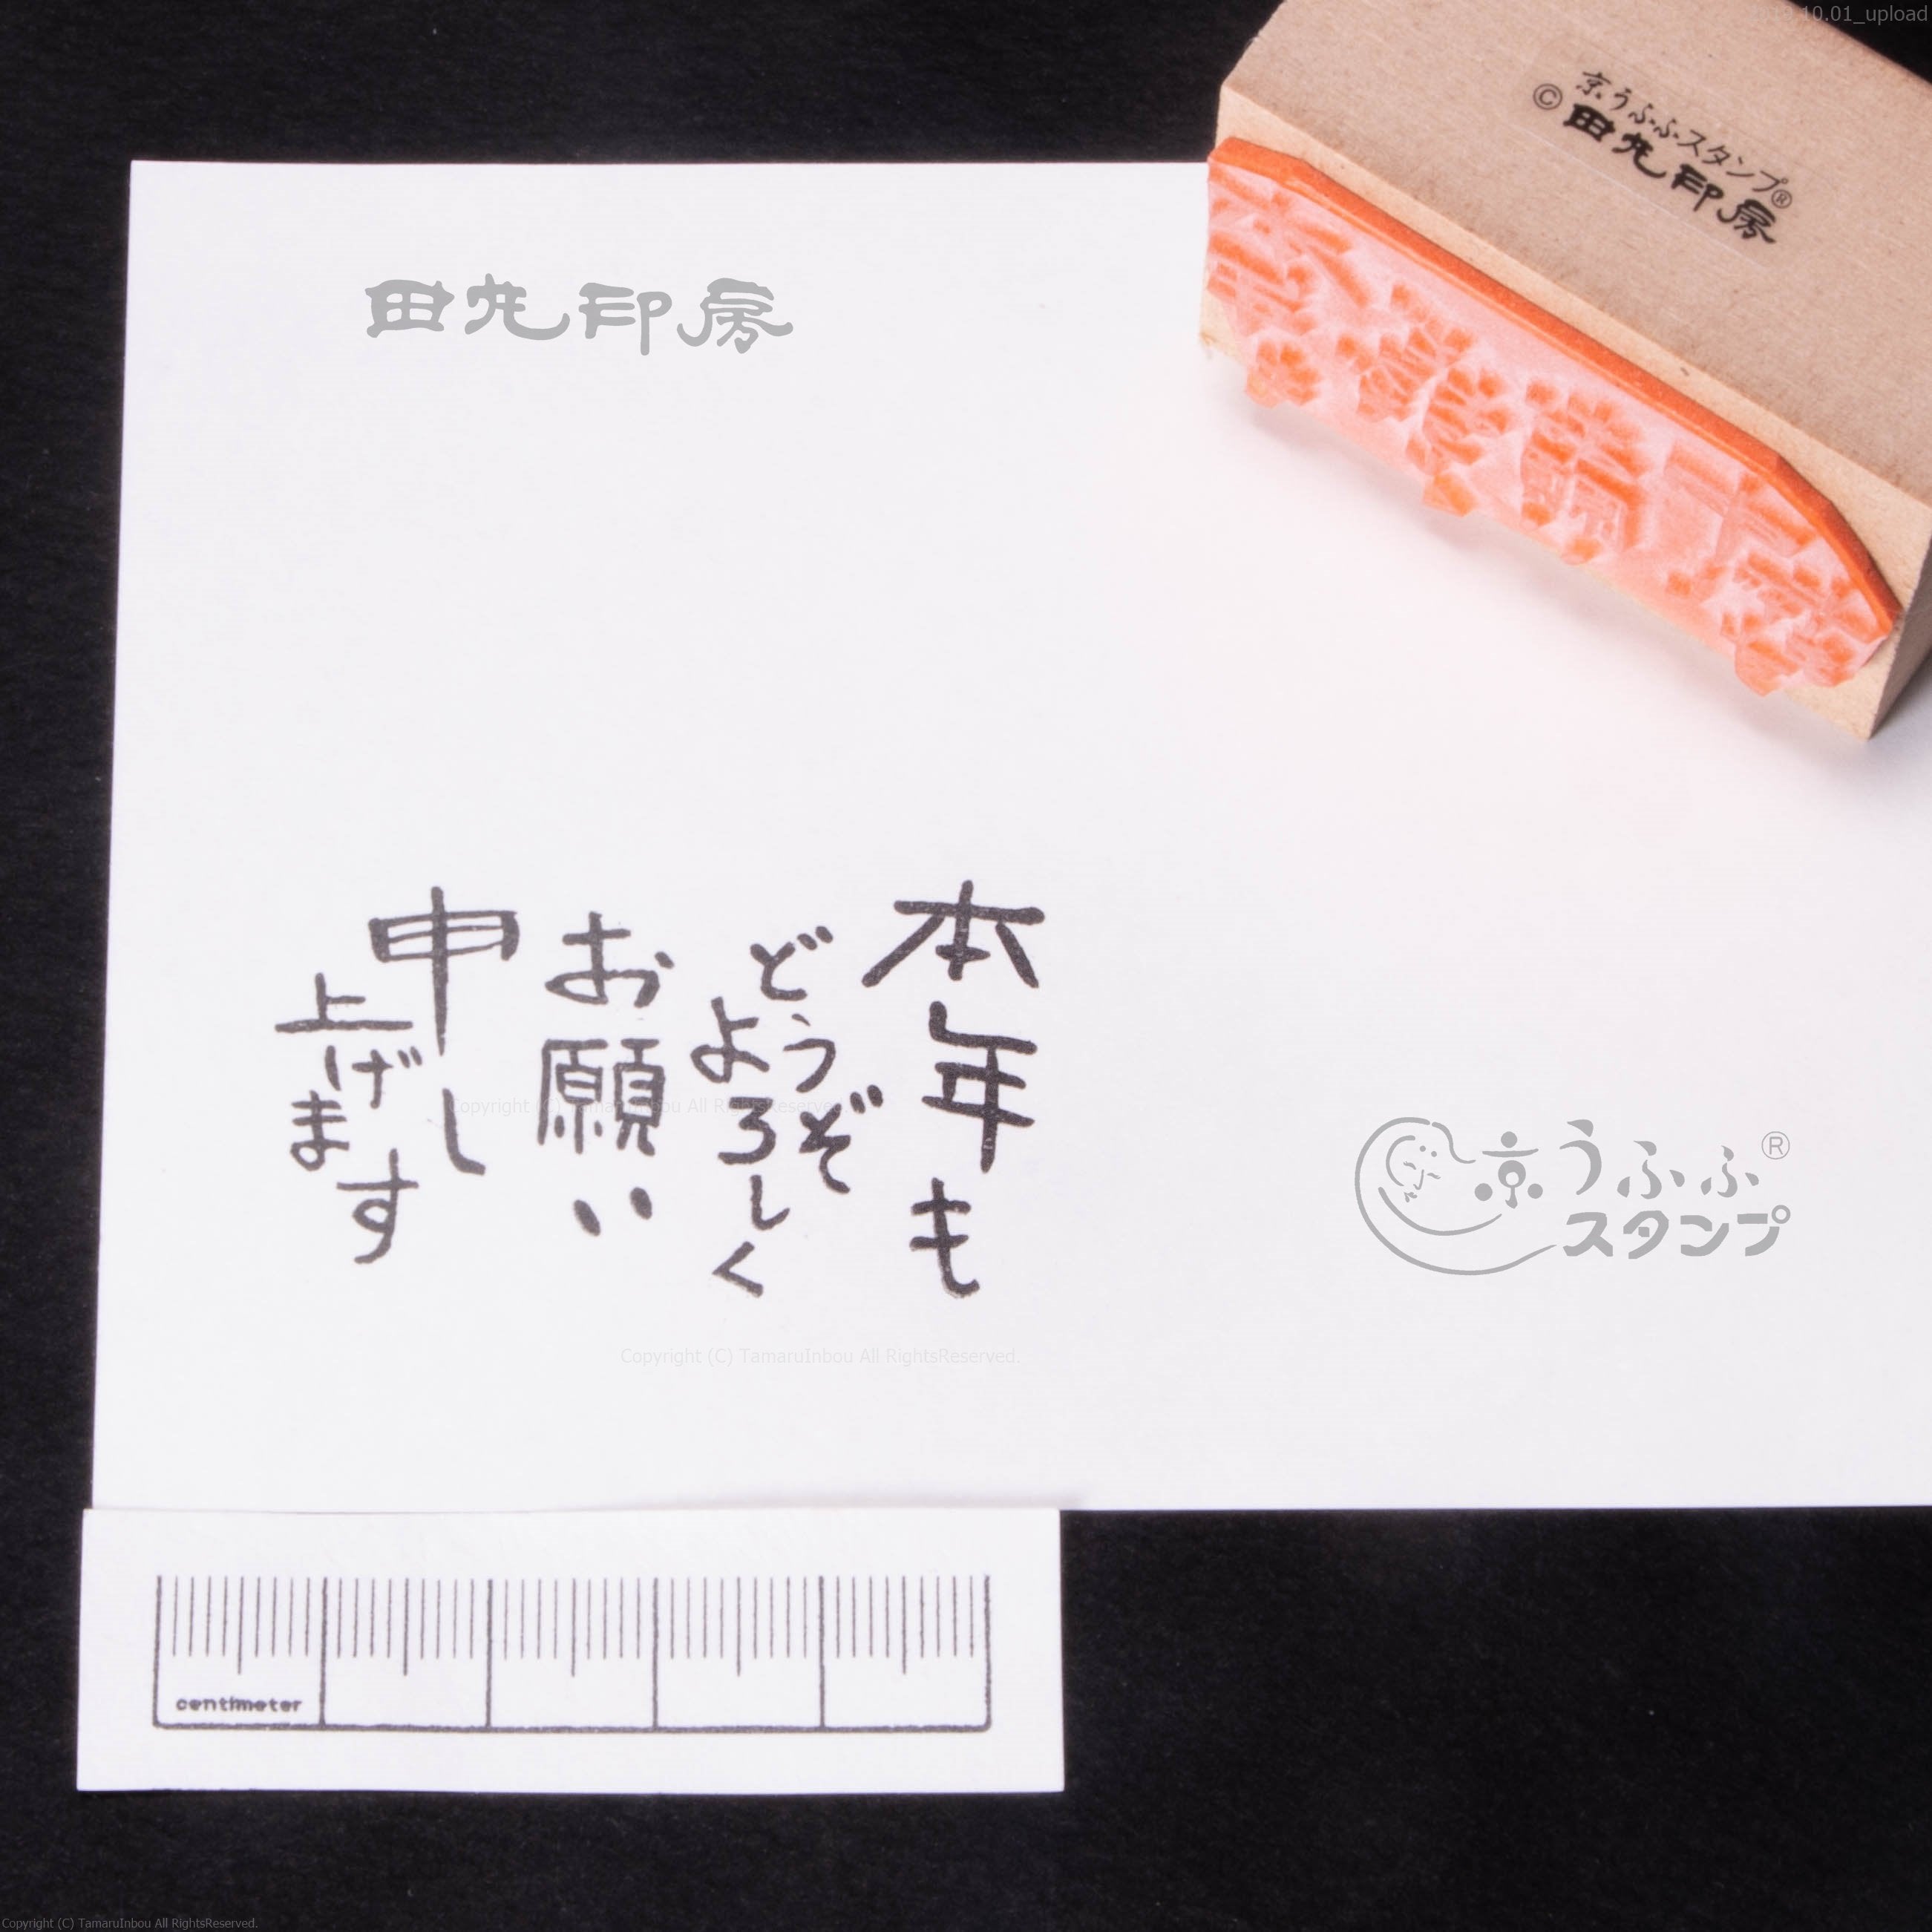 10.01_upload
京うふふスタンプ®
©田丸印房
田丸印房
本年も
どうぞ
よろしく
お願い
申し
上げます
Copyright (C) TamaruInbou All RightsReserved.
京うふふ®
スタンプ
Copyright (C) TamaruInbou All RightsReserved.
centimeter
Copyright (C) TamaruInbou All RightsReserved.